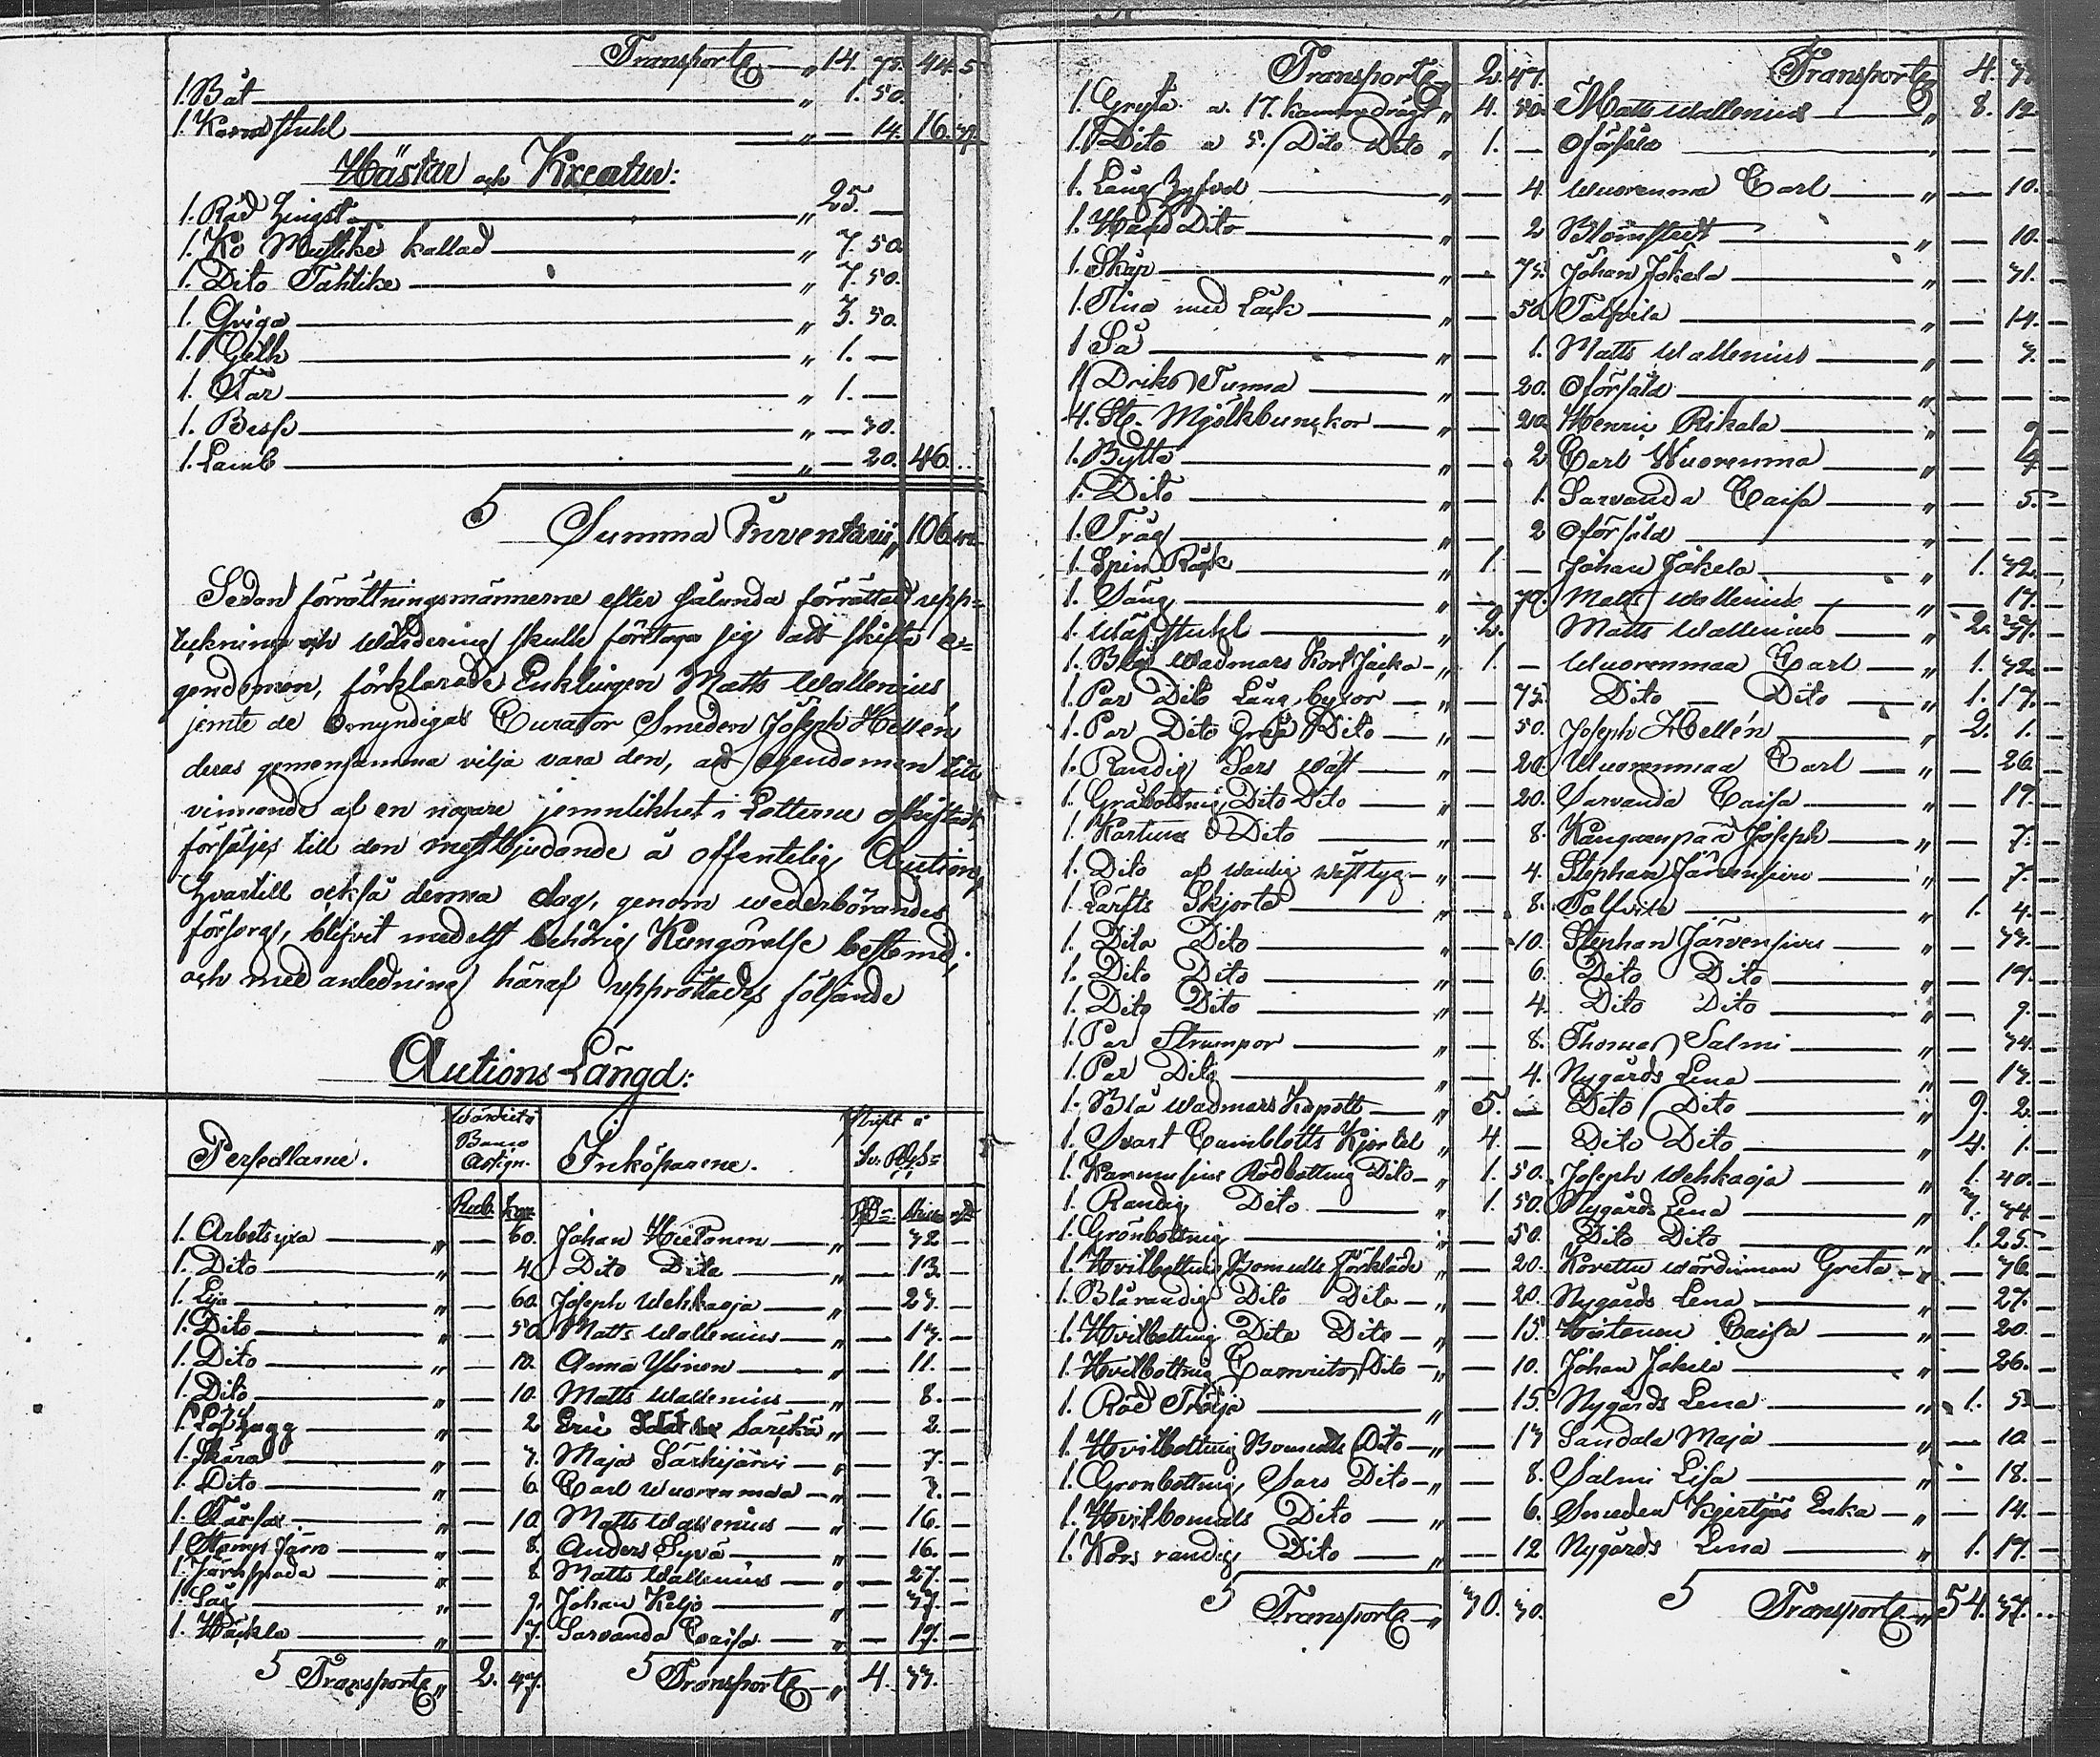 Transporte „ 14. 75. 44. 5
1. Båt „ 1. 50.
1. Kornstuhl „ — 14. 16. 39.
Hästar och Kreatur:
1. Röd hingst „ 25. —
1. Ko Mustike kallad „ 7. 50.
1. Dito Tähtike „ 7. 50.
1. Qviga „ 3. 50.
1. „ 1. —
1. Får „ 1. —
1. „ — 30.
1. Lamb „ — 20. 46. ..
Summa Inventarii „ 106.
Sedan förrättningsmännerne efter sålunda förrättad upp-
tekning och wärdering skulle företaga sig att skifta e-
gendomen, förklarade Enklingen Matts Wallenius
jemte de omyndigas Curator Smeden Joseph Hellén
deras gemensamma vilja vara den, att egendomen till
vinnande af en nogare jemnlikhet i Lotterne oskiftadt
försäljes till den mestbjudande å offentelig Auction,
hvartill också denna dag, genom wederbörandes
försorg, blifvit medelst behörig Kungörelse bestemd,
och med anledning häraf upprättades följande
Auctions Längd:
Persedlarne. Wärderita Banco Assign. Inköparene. Sv. Rgs
Rub. Kop. Rd
1. Arbetsyxa „ — 60. Johan Hietanen „ — 32 —
1. Dito „ — 4. Dito Dito „ — 13. —
1. Lia „ — 60. Joseph Wehkaoja „ — 23. —
1. Dito „ — 50. Matts Wallenius „ — 13. —
1. Dito „ — 10. Anna Ylinen „ — 11. —
1. Dito „ — 10. Matts Wallenius „ — 8. —
1. Löfhugg „ — 2 Eric Särkä „ — 2. —
1. Skära „ — 3. Maja Särkijärvi „ — 7. —
1. Dito „ — 6. Carl Wuorenmaa „ — 3. —
1. „ — 10. Matts Wallenius „ — 16. —
1. Stamp Järn „ — 8. Anders Syvä „ — 16. —
1. Järnspada „ — 8. Matts Wallenius „ — 27. —
1. Såg „ — 9. Johan Keljo „ — 37. —
1. Häckla „ — 17. Sarvanda Caisa „ — 19. —
Transporte „ 2. 47. Transporte „ 4. 33.
Transporte 2. 47. Transporte 4. 33
1. Gryta a 17. kannor drägt „ 4. 50. Matts Wallenius „ 8. 12.
1. Dito a 5. Dito Dito „ 1. — Oförsåld — —
1. „ — 4. Wuorenmaa Carl „ — 10. —
1. Hand Dito „ — 2 Blomstedt „ — 10. —
1. Skåp „ — 75. Johan Jokela „ — 31. —
1. Tina med Låck „ — 50. Talfvila „ — 14. —
1 Så „ — 1. Matts Wallenius „ — 3. —
1 Dricks Tunna „ — 20. Oförsåld „ — —
4. St. Mjölkbunckor „ — 20. Henric Rikala „ — 9 —
1. Bytta „ — 2 Carl Wuorenmaa „ — 4 —
1. Dito „ — 1. Sarvanda Caisa „ — 5. —
1. Tråg „ — 2 Oförsåld — —
1. Spin Råck „ 1. — Johan Jokela „ 1. 32. —
1. Säng „ — 70. Matts Wallenius „ — 17. —
1. Wäfstuhl „ 2. Matts Wallenius „ 2. 37. —
1. Blå Wadmars Kort Jacka „ 1. — Wuorenmaa Carl „ 1. 32 —
1. Par Dito Lång byxor „ — 75. Dito Dito „ 1. 17. —
1. Par Dito Grå Dito „ — 50. Joseph Hellén „ 2. 1. —
1. Randig Sars Wäst „ — 20. Wuorenmaa Carl „ — 26. —
1. Gråbottnig Dito Dito „ — 20. Sarvanda Caisa „ — 19. —
1. Kartuns Dito „ — 8. Kangaanpää Joseph „ — 7. —
1. Dito af randig wästtyg „ — 4. Stephan Järvensivu „ — 7. —
1 Lärfts Skjorta „ — 8. Talfvila „ 1. 4. —
1. Dito Dito „ — 10. Stephan Järvensivu „ — 33. —
1. Dito Dito „ — 6. Dito Dito „ — 19. —
1. Dito Dito „ — 4. Dito Dito „ — 9. —
1. Par Strumpor „ — 8. Thomas Salmi „ — 34. —
1. Par Dito „ — 4. Nygårds Lena „ — 13. —
1. Blå Wadmars Kapott „ 5. — Dito Dito „ 9. 2. —
1. Svart Camblotts Kjortel „ 4. — Dito Dito „ 4. 1. —
1. Rödbottnig Dito „ 1. 50. Joseph Wehkaoja „ 1. 40. —
1. Randig Dito „ 1. 50. Nygårds Lena „ 3. 44. —
1. Grönbottnig „ — 50. Dito Dito „ 1. 25. —
1. Hvitbottnig Bomulls Förkläde „ — 20. Greta „ — 36. —
1. Blårandig Dito Dito „ — 20. Nygårds Lena „ — 27. —
1. Hvitbottnig Dito Dito „ — 15. Caisa „ — 20. —
1. Hvitbottnig Dito „ — 10. Johan Jokela „ — 26. —
1. Röd Tröja „ — 15. Nygårds Lena „ 1. 5. —
1. Hvitbottnig Bomulls Dito „ — 13 Sandala Maja „ — 10. —
1. Grönbottnig Sars Dito „ — 8. Salmi Lisa „ — 18. —
1. Hvit bomuls Dito „ — 6. Smeden Enka „ — 14. —
1. Kors randig Dito „ — 12 Nygårds Lena „ 1. 19. —
Transporte „ 30. 30. Transporte „ 54. 37. ..